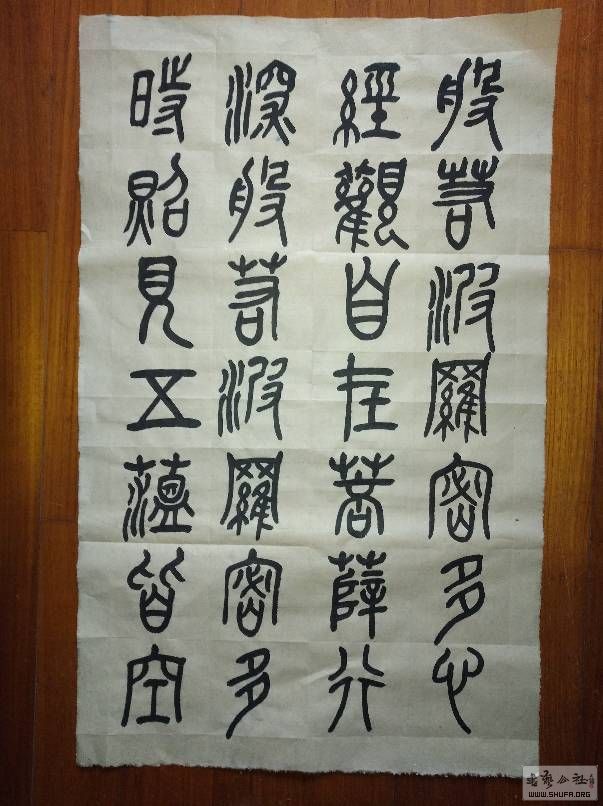 般若波羅密多心
經觀自在菩薩行
深般若波羅密多
時照見五蘊皆空
WWW.SHUFA.ORG